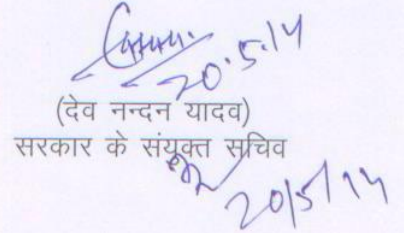 20.5.14
(देव नन्दन यादव)
सरकार के संयुक्त सचिव
20/5/14